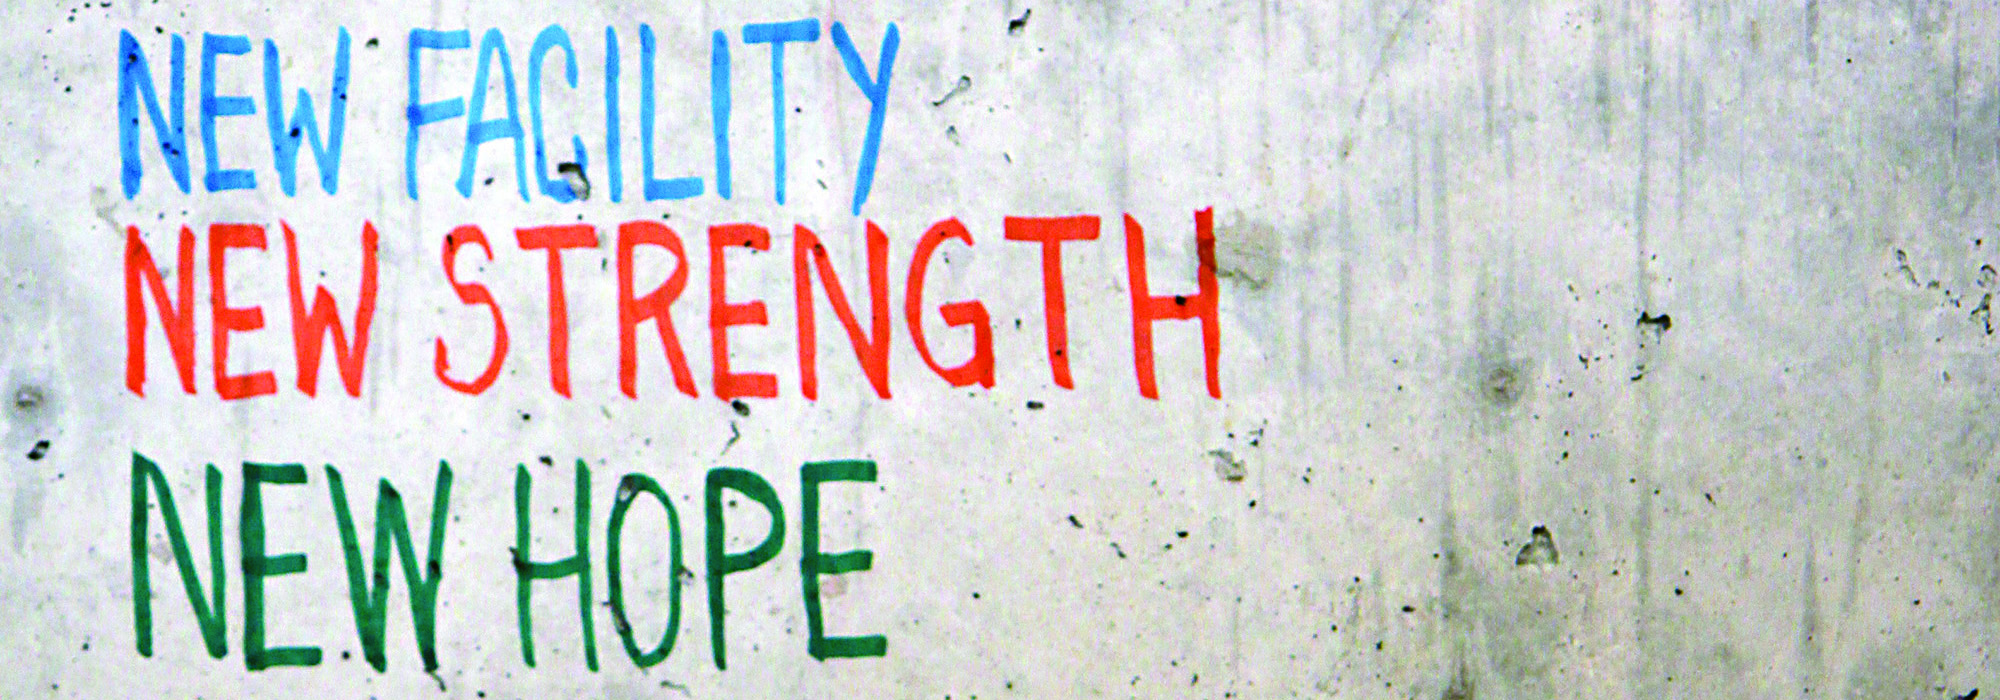 NEW FACILITY
NEW STRENGTH
NEW HOPE